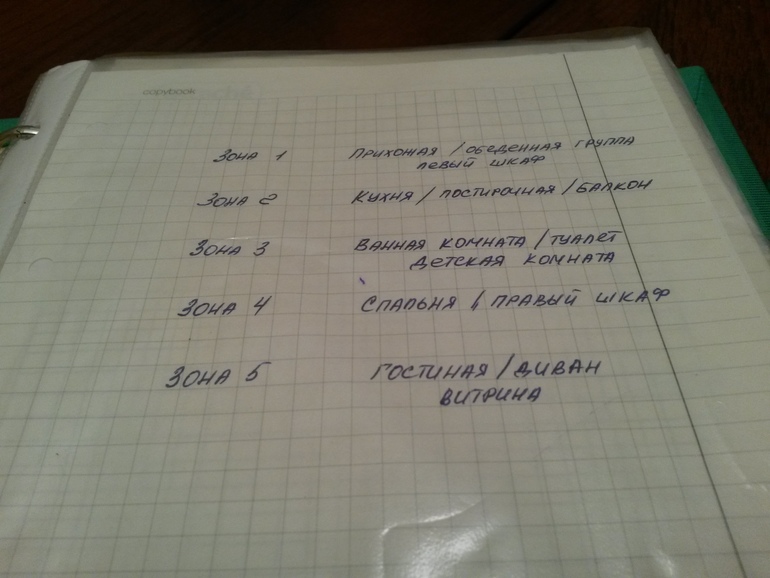 copybook
Зона 1 Прихожая / обеденная группа
левый шкаф
Зона 2 Кухня / постирочная / балкон
Зона 3 Ванная комната / туалет
детская комната
Зона 4 Спальня / правый шкаф
Зона 5 Гостиная / диван
витрина